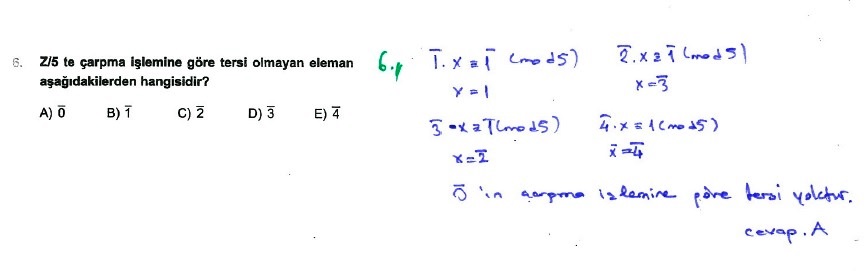 6. Z/5 te çarpma işlemine göre tersi olmayan eleman
aşağıdakilerden hangisidir?
A) 0̅ B) 1̅ C) 2̅ D) 3̅ E) 4̅
6.) 1̅.x ≡ 1̅ (mod5) 2̅.x ≡ 1̅ (mod5)
x=1 x=3̅
3̅.x ≡ 1̅(mod5) 4̅.x ≡ 1(mod5)
x=2̅ x̅=4̅
0̅'ın çarpma işlemine göre tersi yoktur.
cevap.A